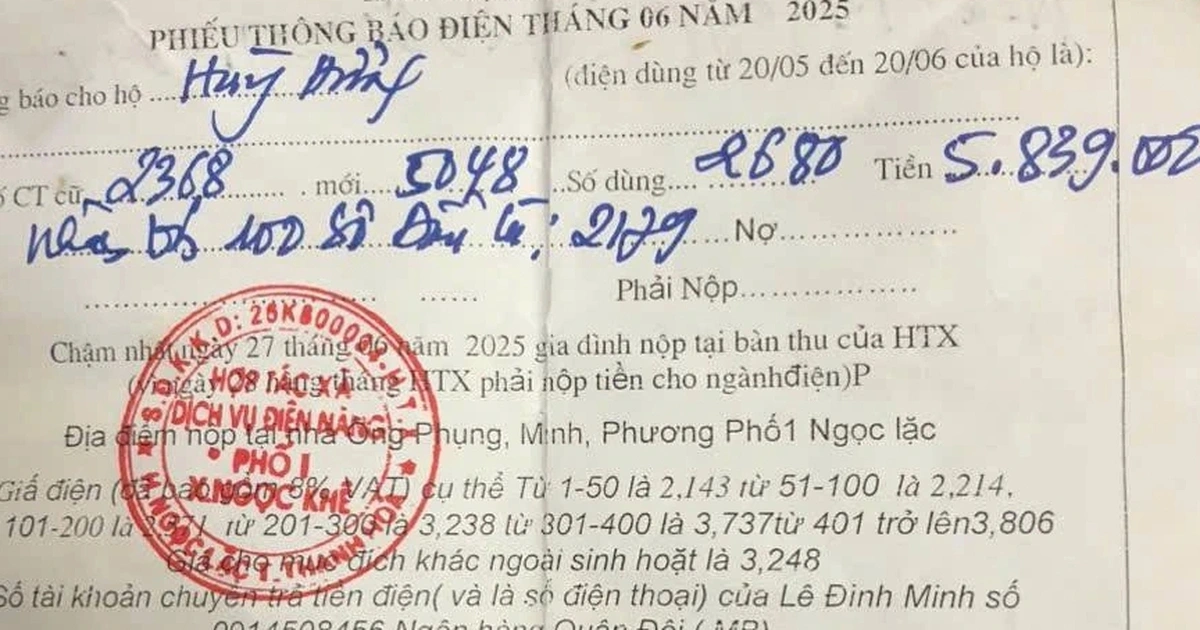 PHIẾU THÔNG BÁO ĐIỆN THÁNG 06 NĂM 2025
g báo cho hộ .... Huỳ (điện dùng từ 20/05 đến 20/06 của hộ là):
CT cũ 2368 ....... . mới.... 5048 ..Số dùng.... 2680 Tiền 5.839.000
100 số 2179 ... Nợ...................
Phải Nộp...................
Chậm nhất ngày 27 tháng 06 năm 2025 gia đình nộp tại bàn thu của HTX
(vì ngày 08 hàng tháng HTX phải nộp tiền cho ngànhđiện)P
Địa điểm nộp tại nhà Ông Phụng, Minh, Phương Phố1 Ngọc lặc
Giấ điện (đã bao gồm 8% VAT) cụ thể Từ 1-50 là 2,143 từ 51-100 là 2,214,
101-200 là 2,371 từ 201-300 là 3,238 từ 301-400 là 3,737từ 401 trở lên3,806
Giá cho mục đích khác ngoài sinh hoạt là 3,248
Số tài khoản chuyển trả tiền điện( và là số điện thoại) của Lê Đinh Minh số
Ngân hàng Quân Đội ( MB)
HỢP TÁC XÃ
DỊCH VỤ ĐIỆN NĂNG
PHỐ I
X.NGỌC KHÊ